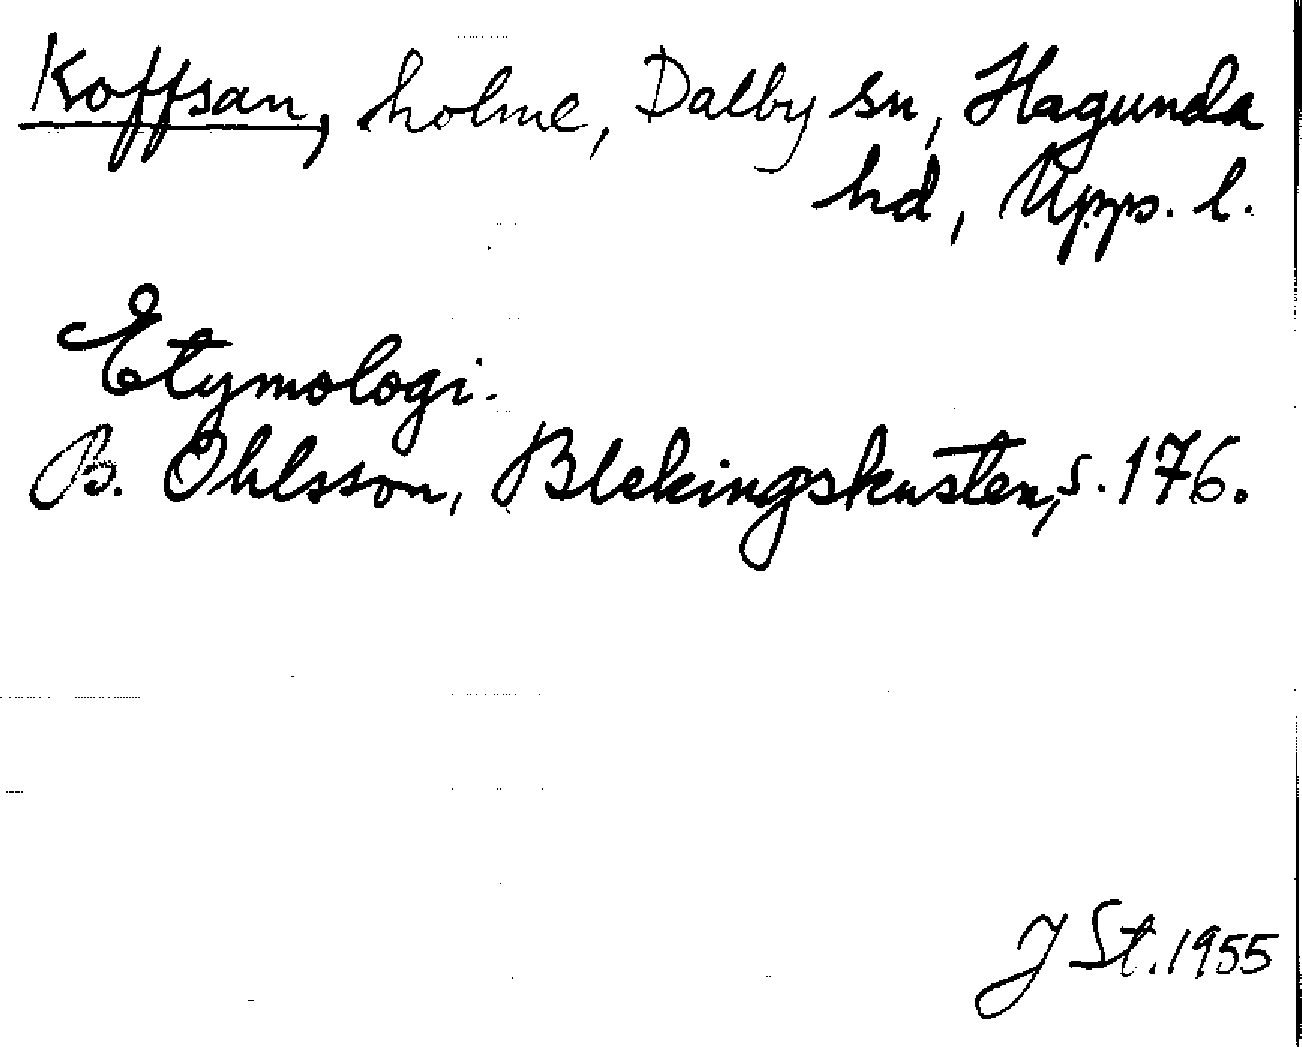 Koffsan, holme, Dalby sn, Hagunda
hd, Upps. l.
Etymologi.
B. Ohlsson, Blekingskusten, s. 176.
J St. 1955